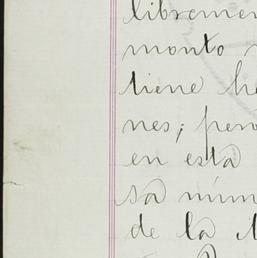 libremen
monto
tiene he
nes; pero
en esta
sa mum
de la